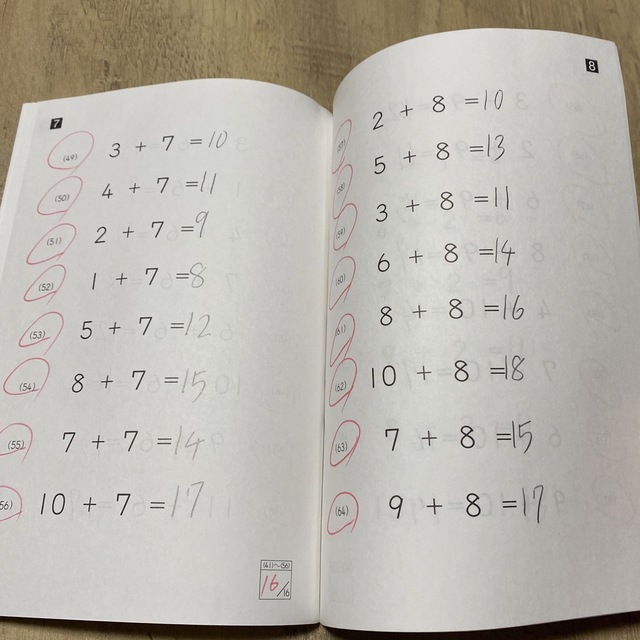 7
(49) 3 + 7 = 10
(50) 4 + 7 = 11
(51) 2 + 7 = 9
(52) 1 + 7 = 8
(53) 5 + 7 = 12
(54) 8 + 7 = 15
(55) 7 + 7 = 14
(56) 10 + 7 = 17
(41)~(56)
16/16
8
(57) 2 + 8 = 10
(58) 5 + 8 = 13
(59) 3 + 8 = 11
(60) 6 + 8 = 14
(61) 8 + 8 = 16
(62) 10 + 8 = 18
(63) 7 + 8 = 15
(64) 9 + 8 = 17